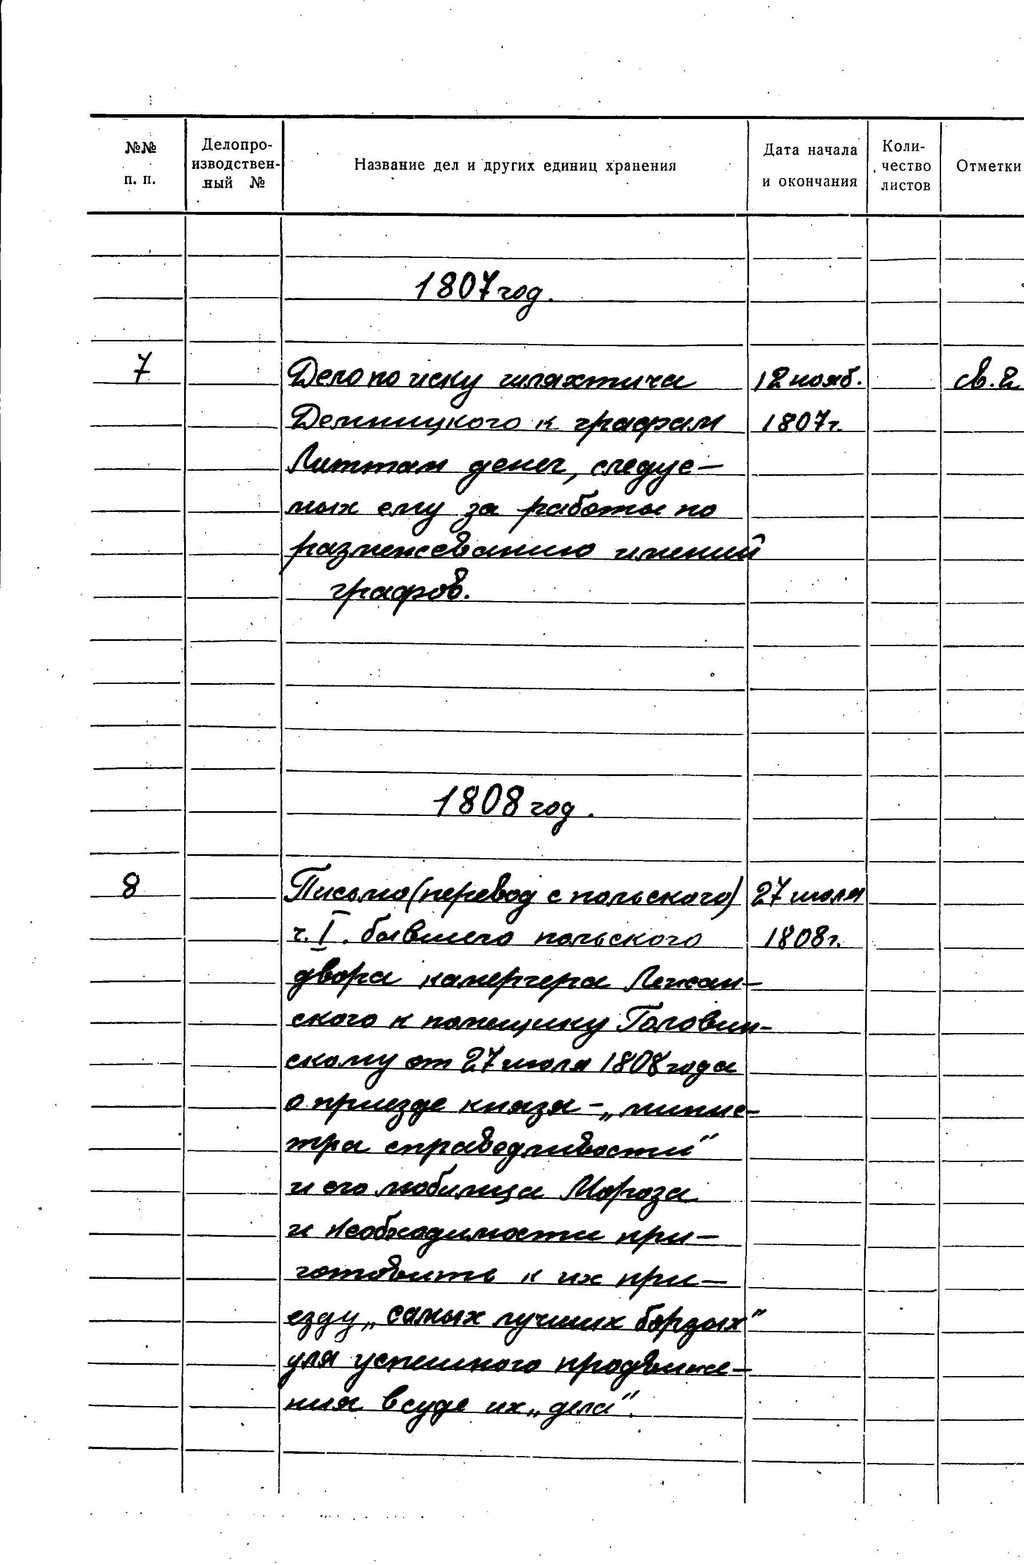 №№ п. п. Делопро-изводствен-ный № Название дел и других единиц хранения Дата начала и окончания Коли-чество листов Отметки
1807 год.
7 Дело по иску шляхтича 12 нояб. св. 2
Демницкого к графам 1807 г.
Литтам денег, следуе-
мых ему за работы по
размежеванию имений
графов.
1808 год.
8 Письмо (перевод с польского) 27 июля
ч. I. бывшего польского 1808 г.
двора камергера Лежан-
ского к помещику Головин-
скому от 27 июля 1808 года
о приезде князя - „минис-
тра справедливости"
и его любимца Мороза
и необходимости при-
готовить к их при-
езду „самых лучших борзых"
для успешного продвиже-
ния в суде их „дела".